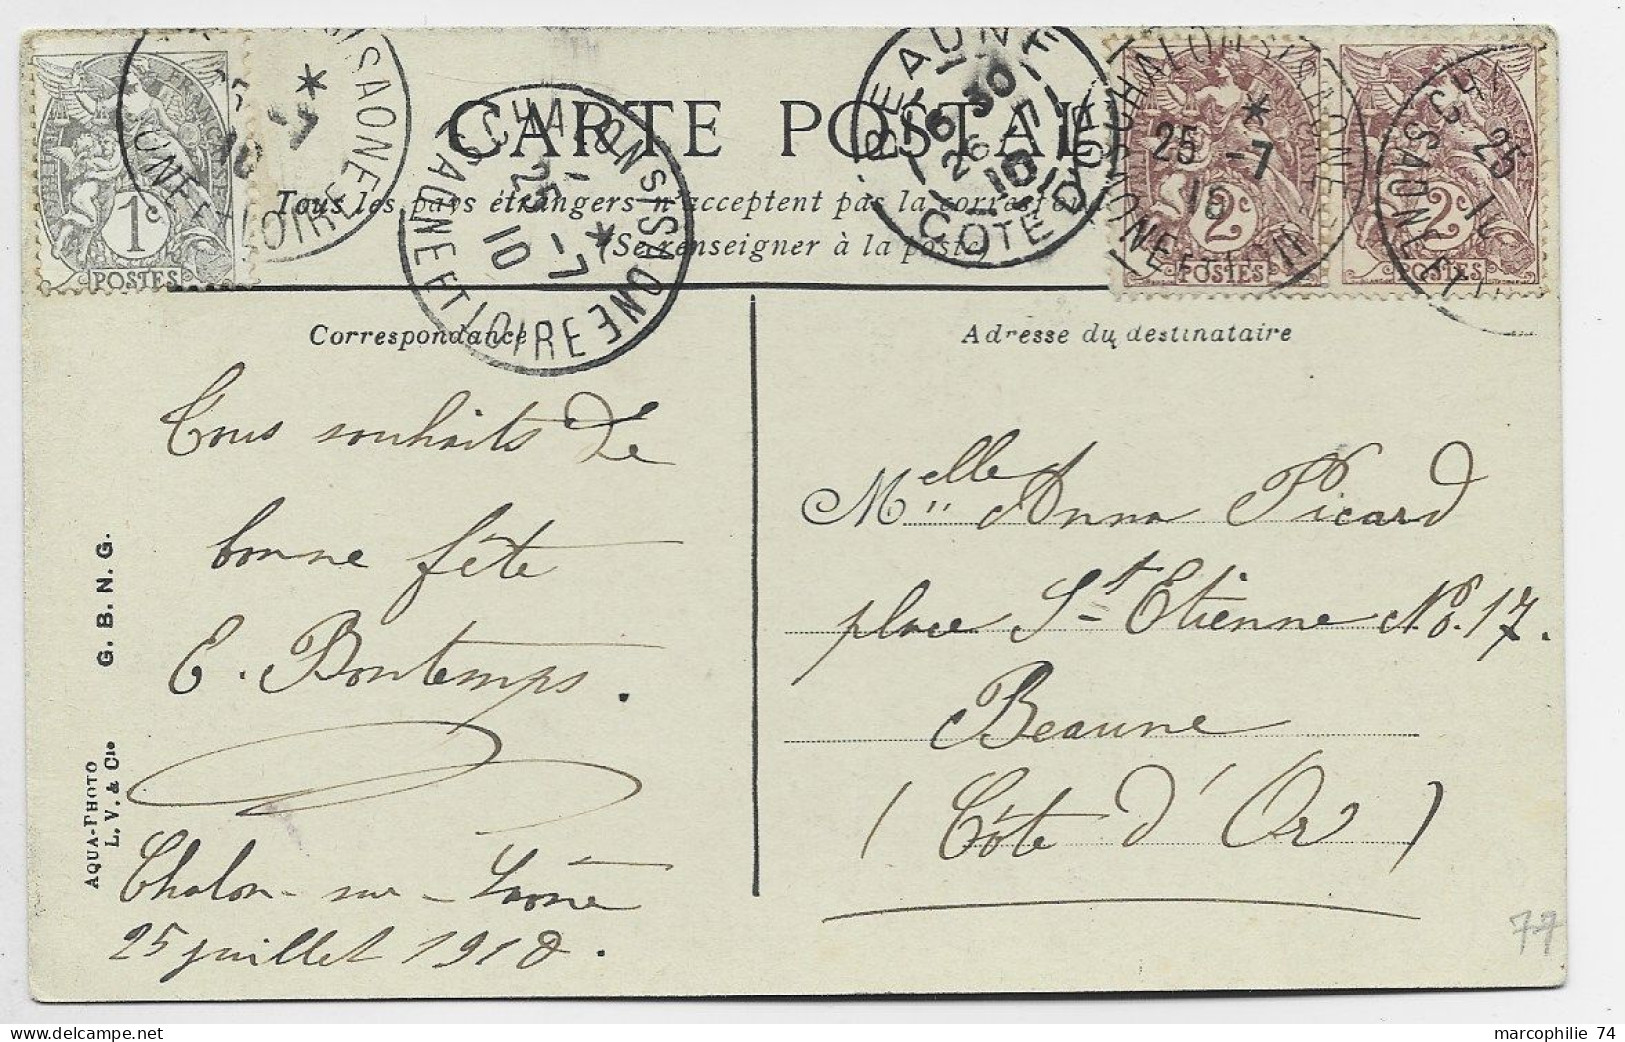 CARTE POSTALE
Tous les pays étrangers n'acceptent pas la correspond
(Se renseigner à la poste)
Correspondance
Adresse du destinataire
Tous souhaits de
bonne fête
E. Bontemps.
Chalon-sur-Saône
25 juillet 1910.
Melle Anna Picard
place St Etienne No. 17.
Beaune
(Côte d'Or)
G. B. N. G.
AQUA-PHOTO
L. V. & Cie
1c
POSTES
2c
POSTES
2c
POSTES
CHALON S/ SAONE
SAONE ET LOIRE
25 -7
10
BEAUNE
16 30
26 -7
10
COTE D'OR
CHALON S/ SAONE
SAONE ET LOIRE
25 -7
10
77
marcophilie 74